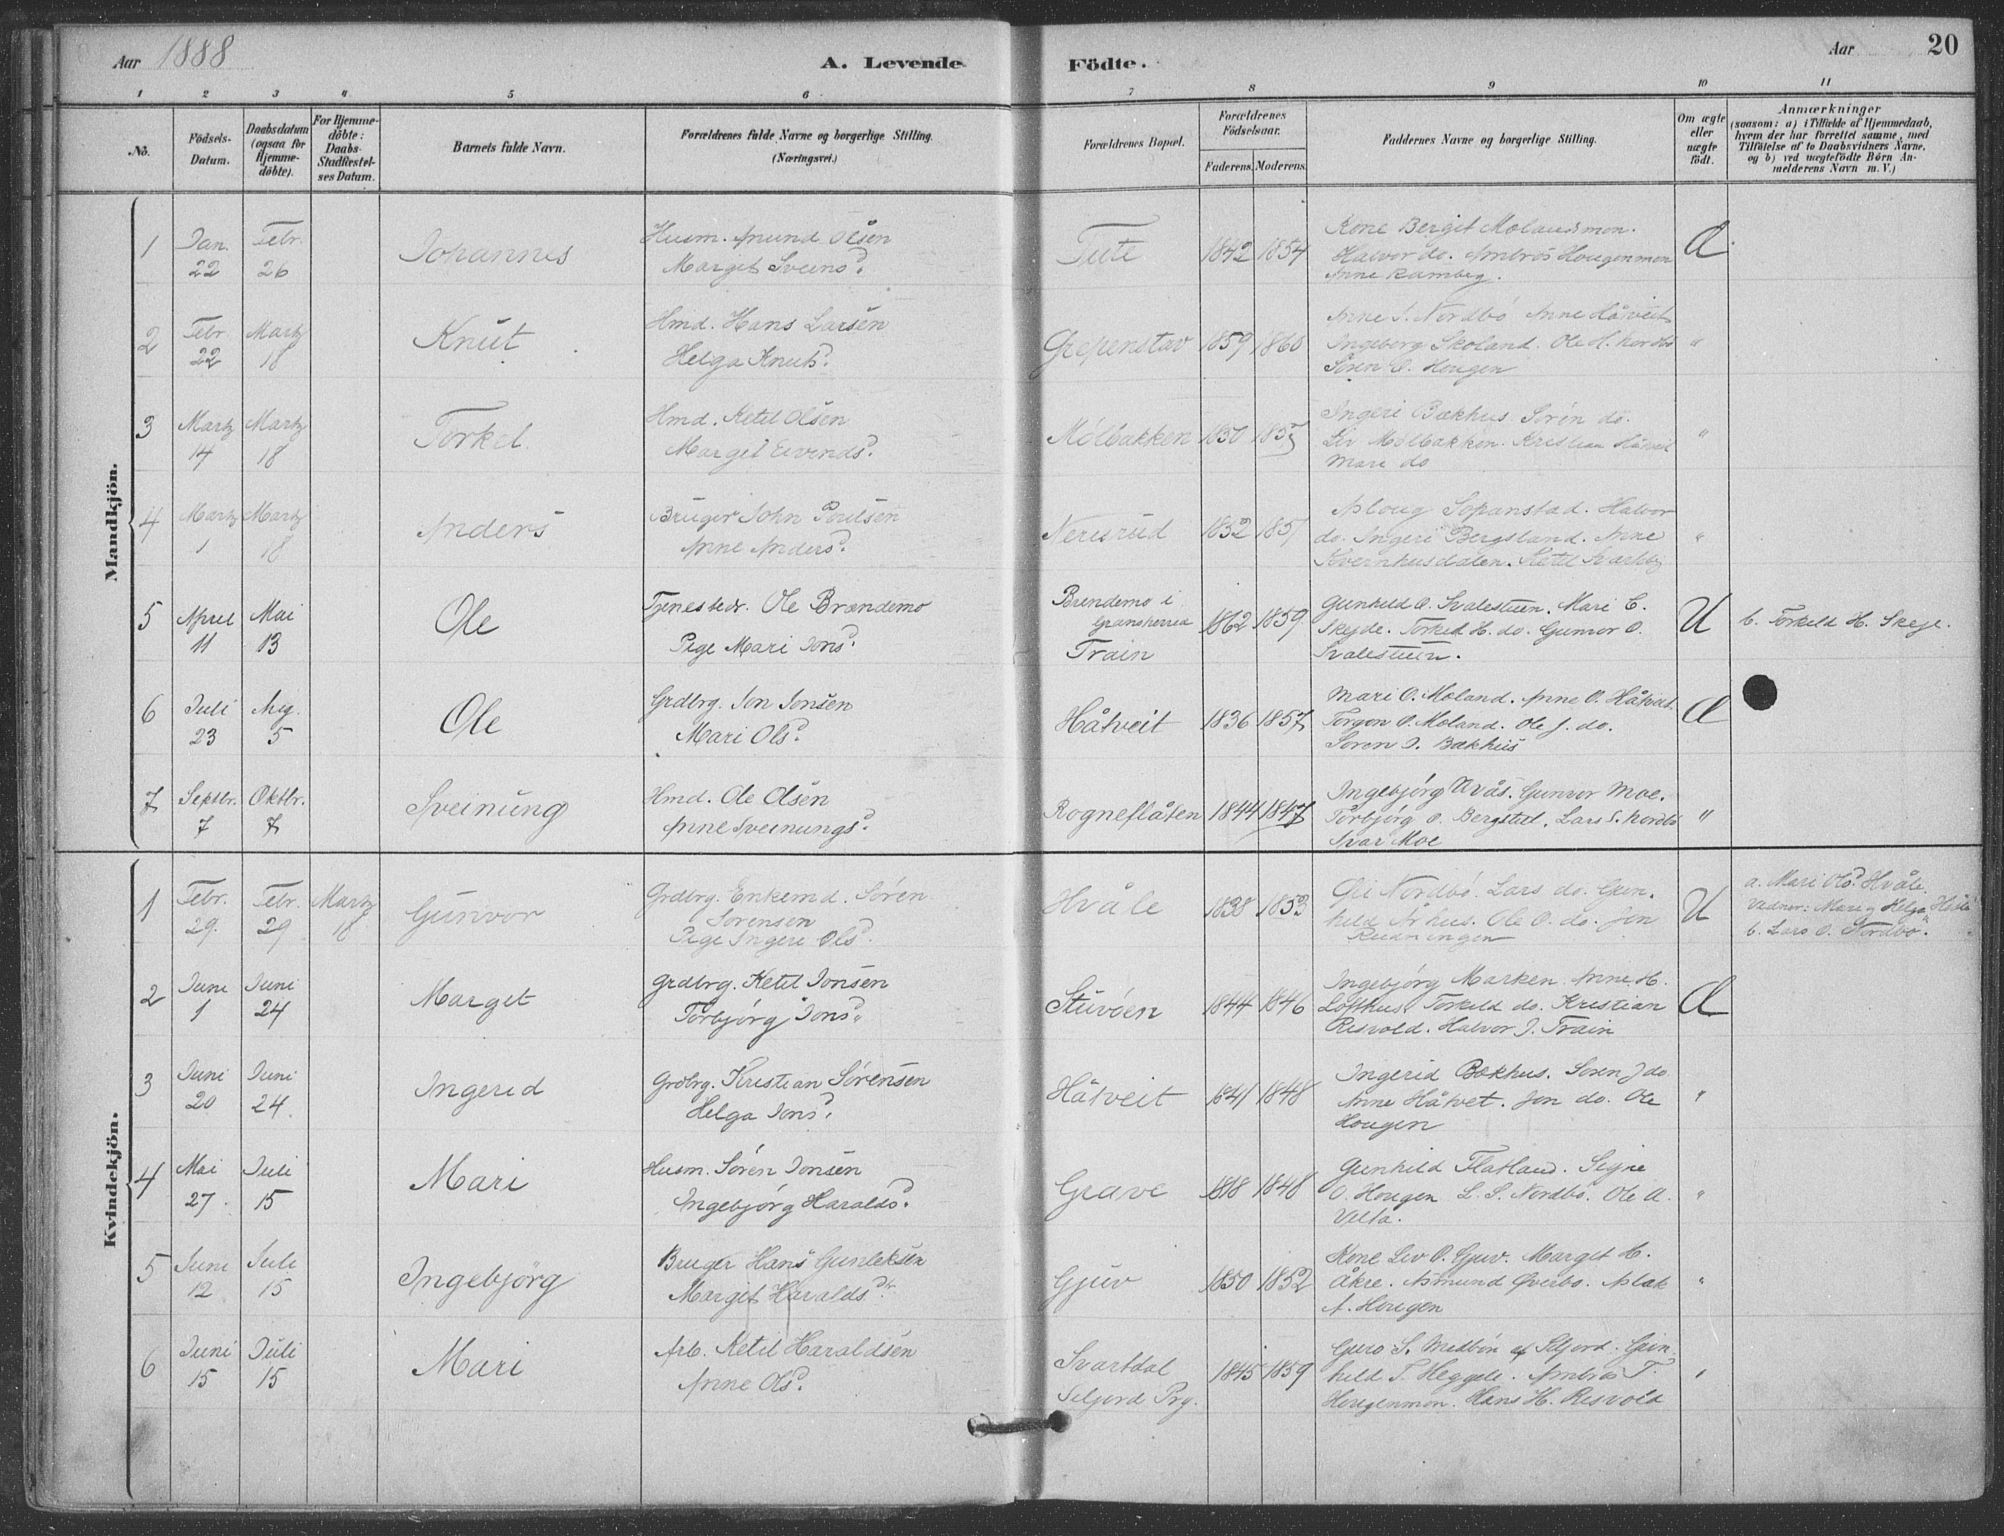 Aar 1888 A. Levende Födte. Aar 20
1 2 3 4 5 6 7 8 9 10 11
No.
Födsels-Datum.
Daabsdatum (ogsaa for Hjemmedöbte).
For Hjemmedöbte: Daabs-Stadfæstelses Datum.
Barnets fulde Navn.
Forældrenes fulde Navne og borgerlige Stilling. (Næringsvei.)
Forældrenes Bopæl.
Forældrenes Födselsaar.
Faderens. Moderens.
Faddernes Navne og borgerlige Stilling.
Om ægte eller uægte födt.
Anmærkninger
(saasom: a) i Tilfælde af Hjemmedaab, hvem der har forrettet samme, med Tilföielse af to Daabsvidners Navne, og b) ved uægtefödte Börn Anmelderens Navn m. V.)
Mandkjön.
1 Jan. 22 Febr. 26 Johannes
Husm. Anund Olsen
Margit Sveinsd.
Tute 1842 1854
Kone Bergit Molandsmon.
Halvor do. Ambrös Hougenmon
Anne Ramberg.
Æ
2 Febr. 22 Martz 18 Knut
Hmd. Hans Larsen
Helga Knutsd.
Grepenstav 1859 1860
Anne S. Nordbö Anne Håtveit
Ingeborg Skoland. Ole H. Nordbö
Sören O. Hougen
"
3 Martz 14 Martz 18 Torkel.
Hmd. Ketil Olsen
Margit Eivindsd.
Mölbakken 1850 1857
Ingeri Bækhus Sörén do.
Liv Mölbakken. Kristian Håtveit
Mari do
"
4 Martz 1 Martz 18 Anders
Bruger John Poulsen
Anne Andersd.
Nerisrud 1852 1857
Asloug Sopanstad. Halvor
do. Ingeri Bergsland. Anne
Kvernhusdalen. Ketil
"
5 April 11 Mai 13 Ole
Tjenestedr. Ole Brændemo
Pige Mari Jonsd.
Brendemo i
Gransherred
Train
1862 1859
Gunhild O. Svalestuen. Mari C.
Skejde. Torkild H. do. Gunvor O.
Svalestuen.
U
b. Torkild H. Skeje.
6 Juli 23 Aug. 5 Ole
Grdbrg. Jon Jonsen
Mari Olsd.
Håtveit 1836 1857
Mari O. Moland. Anne O. Håtveit.
Torgon O. Moland. Ole J. do.
Soren J. Bækhus
Æ
7 Septbr. 7 Oktbr. 7 Sveinung
Hmd. Ole Olsen
Anne Sveinungsd.
Rogneflåten 1844 1847
Ingebjörg Wås. Gunvor Moe.
Torbjörg O. Bergstul. Lars S. Nordbö
Ivar Moe
"
Kvindekjön.
1 Febr. 29. Febr. 29 Martz 18 Gunvor
Grdbrg. Enkemd. Sören
Sörensen
Pige Ingeri Olsd.
Hvåle 1838 1853
Nordbö. Lars do. Gunhild
Århus. Ole O. do. Jon
Rudningen
U
a. Mari Olsd. Hvåle.
Vidner: Mari og Helga Hvåle
b. Lars O. Nordbö.
2 Juni 1 Juni 24 Marget
Grdbrg. Ketil Jonsen
Torbjörg Jonsd.
Stuvöen 1844 1846
Ingebjörg Marken. Anne H.
Lofthus. Torkild do. Kristian
Risvold. Halvor J. Train
Æ
3 Juni 20 Juni 24. Ingerid
Grdbrg. Kristian Sörensen
Helga Jonsd.
Håtveit 1841 1848
Ingerid Bækhus. Soren J do
Anne Håtvet. Jon do. Ole
Hougen
"
4 Mai 27. Juli 15 Mari
Husm. Sören Jonsen
Ingebjörg Haraldsd.
Grave 1818 1848
Gunhild Flatland. Signe
O. Hougen L. S. Nordbö. Ole A.
Velta.
"
5 Juni 12 Juli 15 Ingebjörg
Bruger Hans Gunleksen
Margit Haraldsd.
Gjuv 1850 1852
Kone Liv O. Gjuv. Marget H.
Åkre. Asmund Överbö. Aslak
A. Hougen
"
6 Juni 15 Juli 15 Mari
Arb. Ketil Haraldsen
Anne Olsd.
Svartdal
Seljord Prg.
1845 1859
Guro S. Medbön af Seljord. Gunhild
T. Heggele. Ambrös T.
Hougenmon. Hans H. Risvold
"